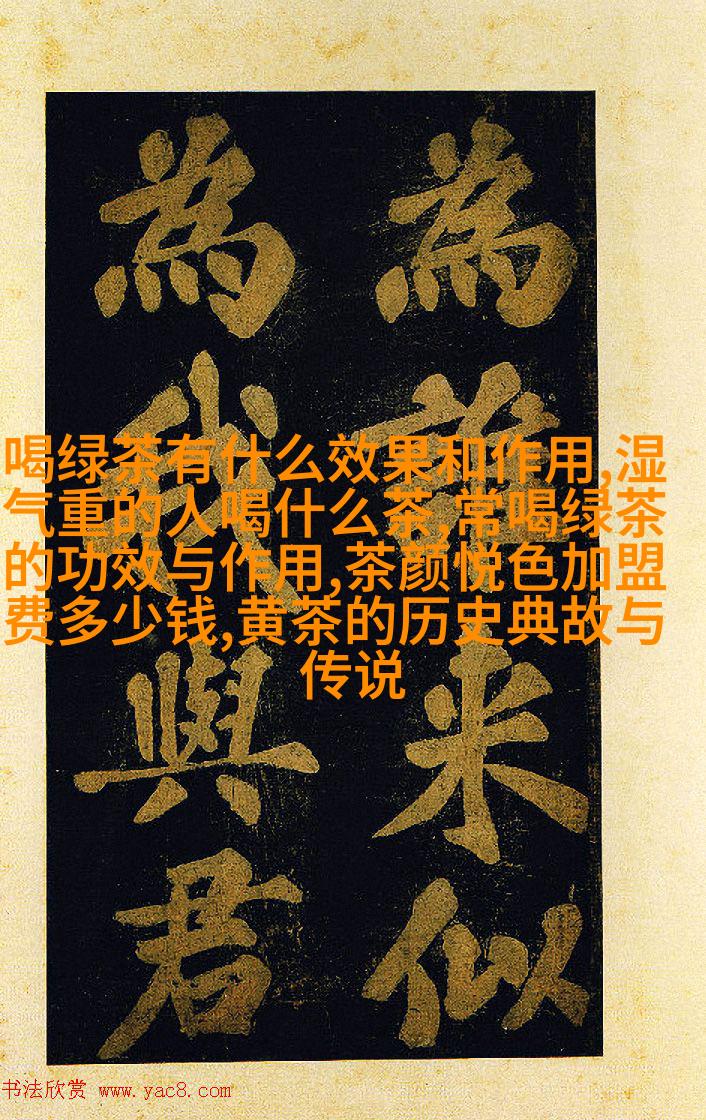 為誰米似
為我與君
喝绿茶有什么效果和作用,湿
气重的人喝什么茶,常喝绿茶
的功效与作用,茶颜悦色加盟
费多少钱,黄茶的历史典故与
传说
书法欣赏 www.yac8.com